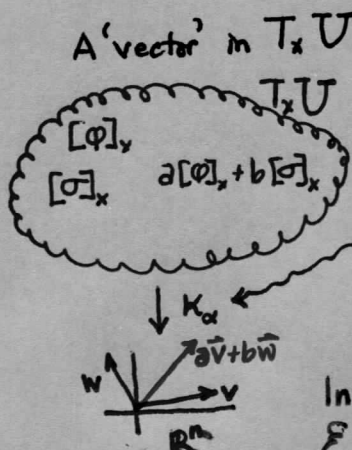 A 'vector' in TₓU
TₓU
[φ]ₓ
[σ]ₓ a[φ]ₓ+b[σ]ₓ
K_α
av⃗+bw⃗
w v
Rⁿ
In